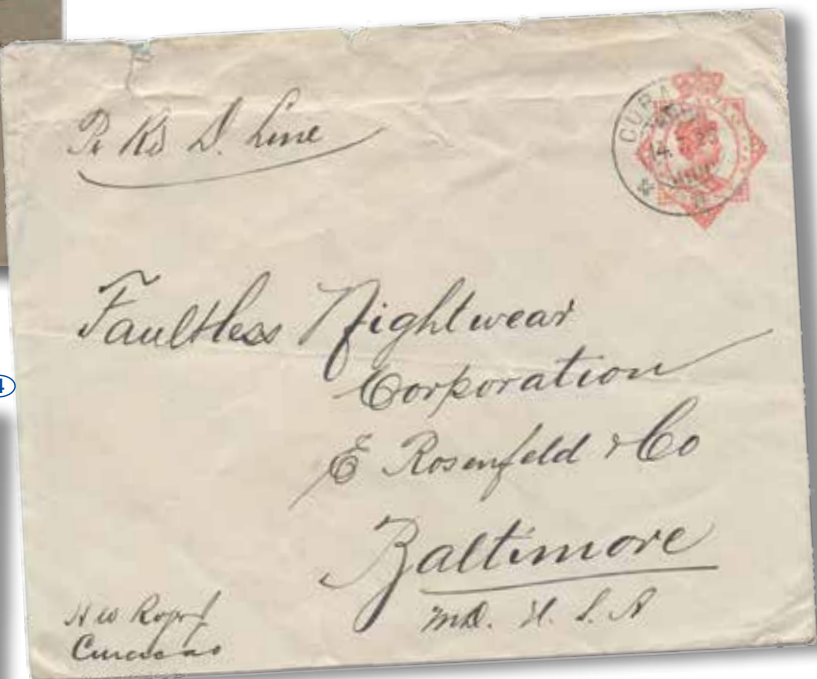 Pr Rd D. Line
CURA
14. 5. 25
Faultless Nightwear
Corporation
E Rosenfeld & Co
Baltimore
MD. U. S. A
Curacao
4